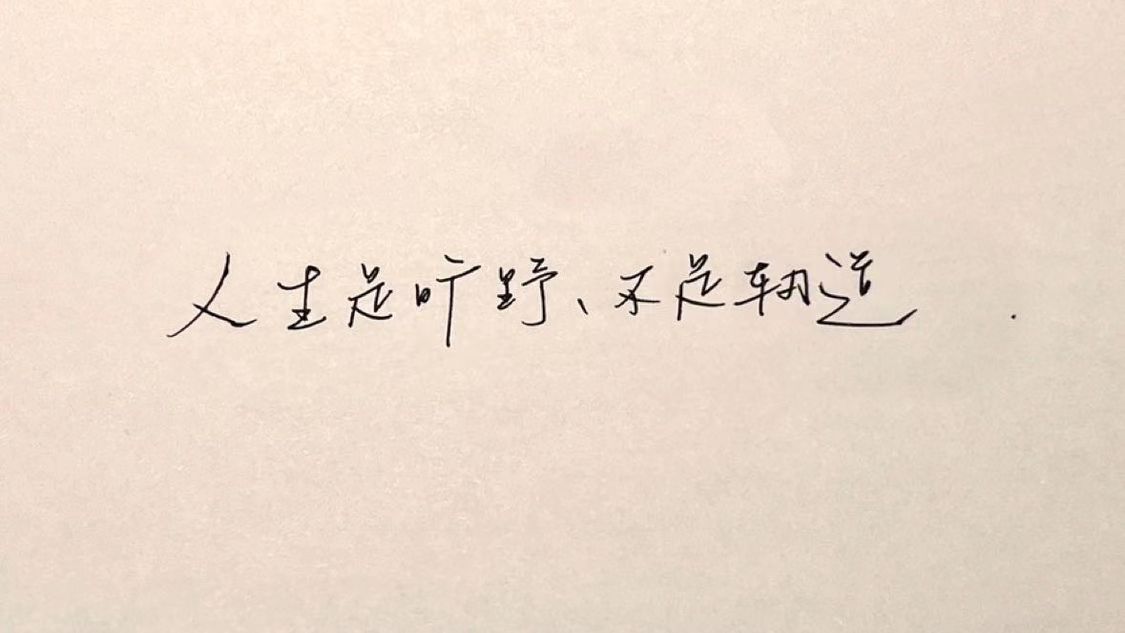 人生是旷野、不是轨道